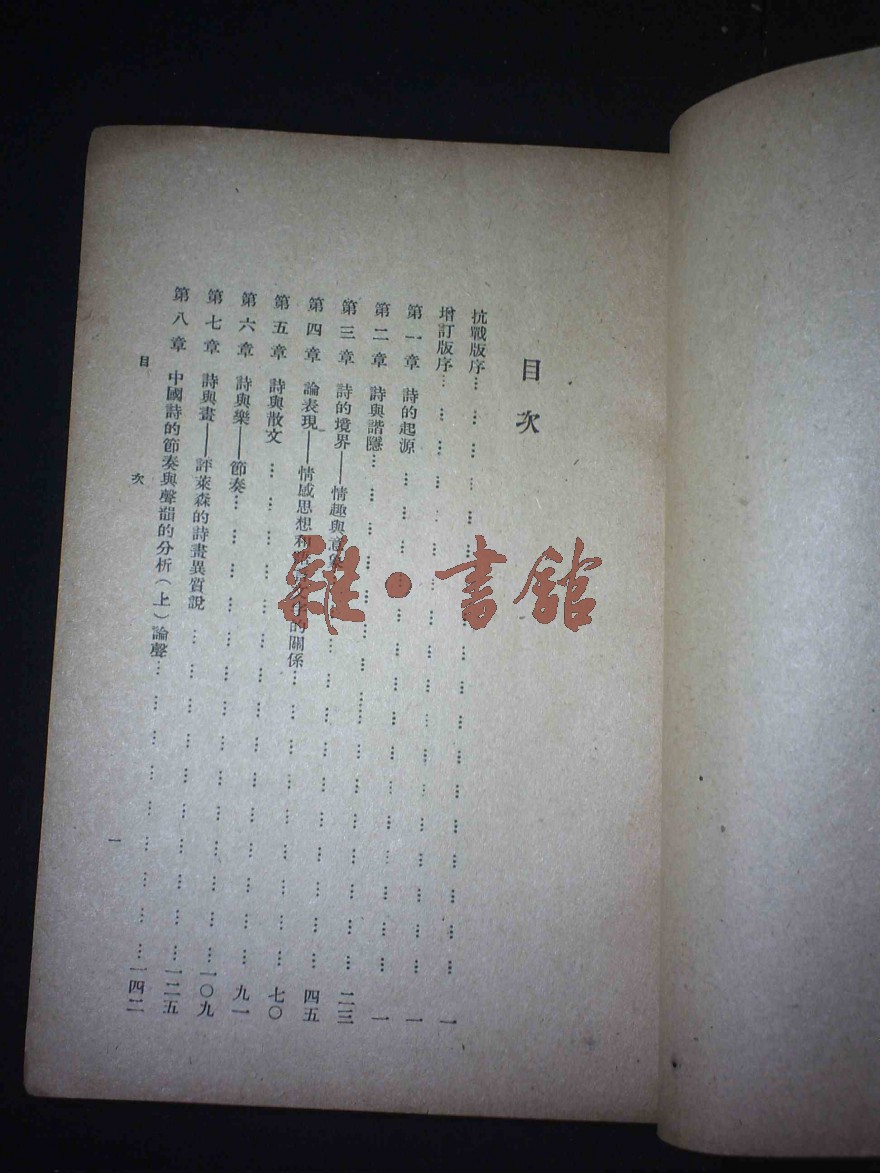 目次
抗戰版序…………一
增訂版序…………一
第一章 詩的起源…………一
第二章 詩與諧隱…………二三
第三章 詩的境界——情趣與意象…………四五
第四章 論表現——情感思想和文字的關係…………七〇
第五章 詩與散文…………九一
第六章 詩與樂——節奏…………一〇九
第七章 詩與畫——評萊森的詩畫異質說…………一二五
第八章 中國詩的節奏與聲韻的分析(上)論聲…………一四二
目次
一
雜·書館